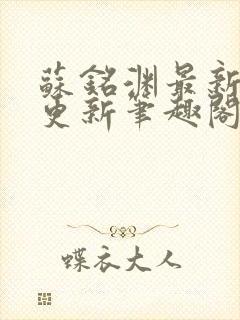 蘇銘淵最新
更新筆趣閣
蝶衣大人